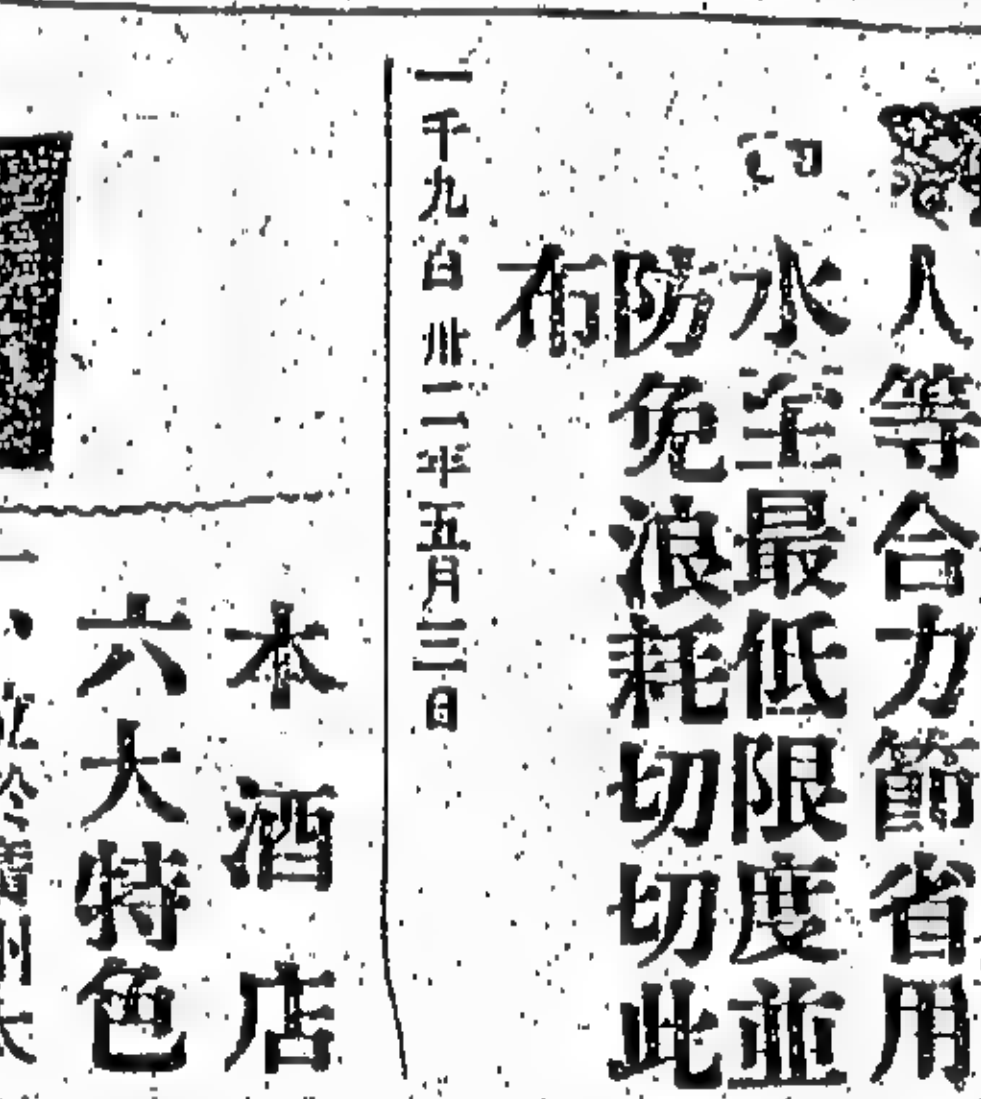 人等合力節省用
水至最低限度並
防免浪耗切切此
布
一千九百卅二年五月三日
本酒店
六大特色